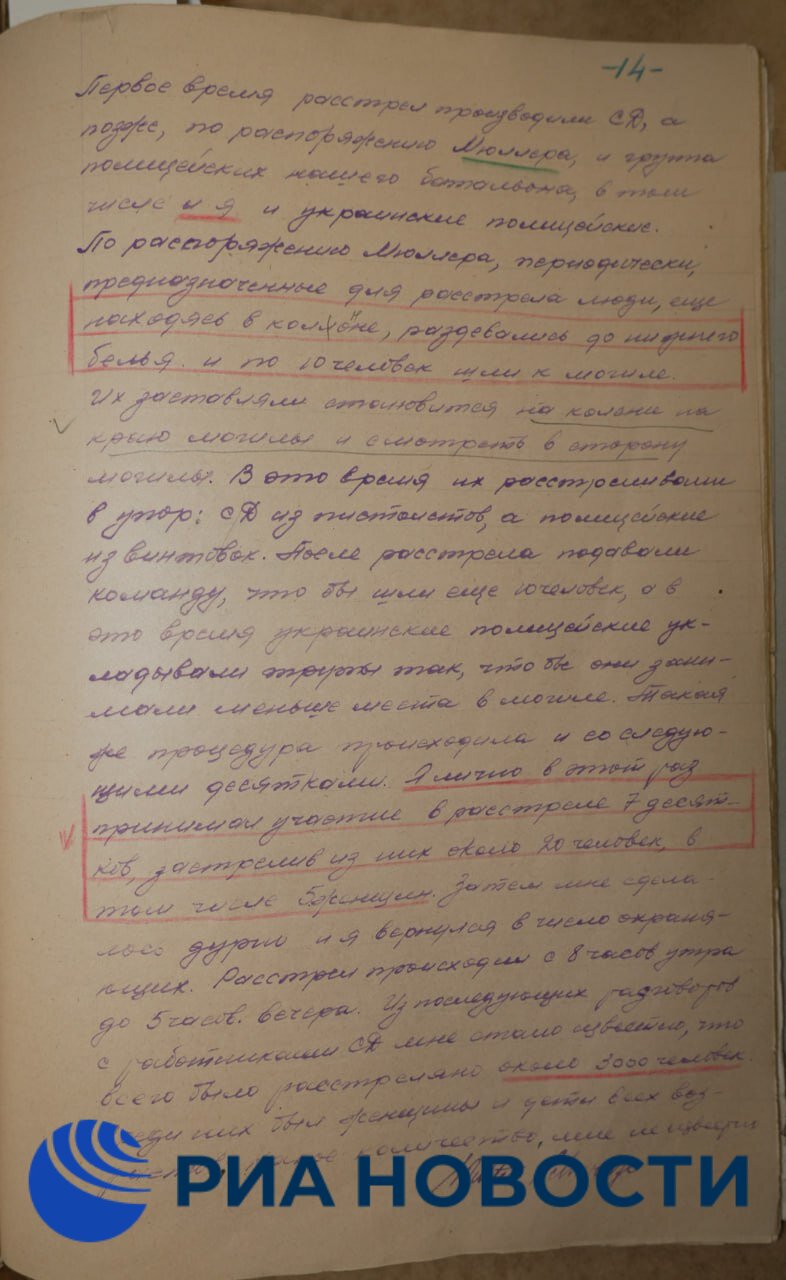 -14-
Первое время расстрел производили СД, а
позже, по распоряжению Мюллера, и группа
полицейских нашего батальона, в том
числе и я и украинские полицейские.
По распоряжению Мюллера, периодически,
предназначенные для расстрела люди, еще
находясь в колонне, раздевались до нижнего
белья и по 10 человек шли к могиле.
Их заставляли становится на колени на
краю могилы и смотреть в сторону
могилы. В это время их расстреливали
в упор: СД из пистолетов, а полицейские
из винтовок. После расстрела подавали
команду, что бы шли еще 10 человек, а в
это время украинские полицейские ук-
ладывали трупы так, что бы они зани-
мали меньше места в могиле. Такая
же процедура происходила и со следую-
щими десятками. Я лично в этот раз
принимал участие в расстреле 7 десят-
ков, застрелив из них около 20 человек, в
том числе 5 женщин. Затем мне сдела-
лось дурно и я вернулся в число охраня-
ющих. Расстрел происходил с 8 часов утра
до 5 часов. вечера. Из последующих разговоров
с работниками СД мне стало известно, что
всего было расстреляно около 3000 человек.
были женщины и дети всех воз-
количество, мне
РИА НОВОСТИ